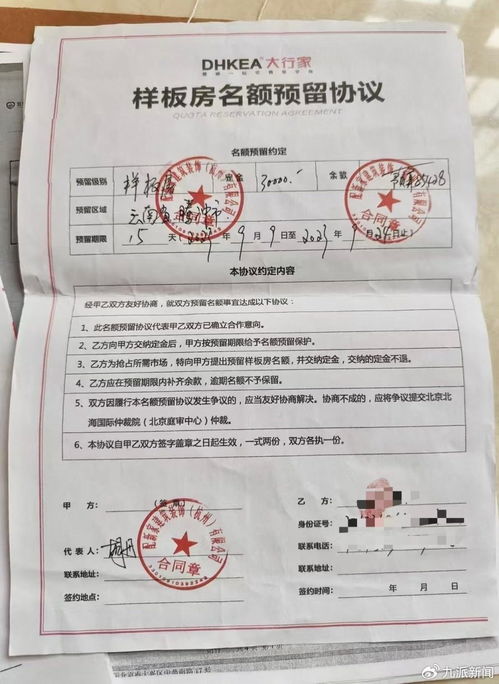 DHKEA 大行家
样板房名额预留协议
QUOTA RESERVATION AGREEMENT
名额预留约定
预留级别 样板房 定金 30000.- 余款
预留区域 云南省腾冲市
预留期限 15 天 2023 年 9 月 9 日至 2023 年 9 月 24 日止
合同章
本协议约定内容
经甲乙双方友好协商，就双方预留名额事宜达成以下协议：
1、此名额预留协议代表甲乙双方已确立合作意向。
2、乙方向甲方交纳定金后，甲方按预留期限给予名额预留保护。
3、乙方为抢占所需市场，特向甲方提出预留样板房名额，并交纳定金，交纳的定金不退。
4、乙方应在预留期限内补齐余款，逾期名额不予保留。
5、双方因履行本名额预留协议发生争议的，应当友好协商解决。协商不成的，应将争议提交北京北
海国际仲裁院（北京庭审中心）仲裁。
6、本协议自甲乙双方签字盖章之日起生效，一式两份，双方各执一份。
甲 方： （签章）
代 表 人：
联系地址：
签约地点：
配新家建筑装饰（杭州）有限公司
合同章
乙 方：
身份证号：
联系电话：
联系地址：
签约时间： 年 月 日
@九派新闻